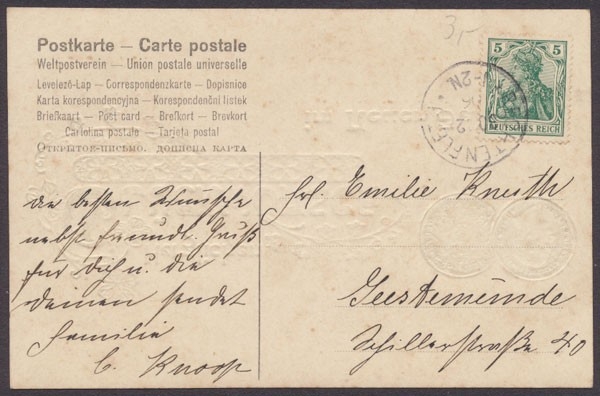 3,-
Postkarte – Carte postale
Weltpostverein – Union postale universelle
Levelező-Lap – Correspondenzkarte – Dopisnice
Karta korespondencyjna – Korespondenční listek
Briefkaart – Post card – Brefkort – Brevkort
Cartolina postale – Tarjeta postal
Открытое-письмо. дописна карта
5 5
DEUTSCHES REICH
die besten Wünsche
nebst freundl. Gruß
für dich u. die
deinen sendet
Familie
C. Knoop
Frl. Emilie Knuth
Geestemünde
Schillerstraße 40